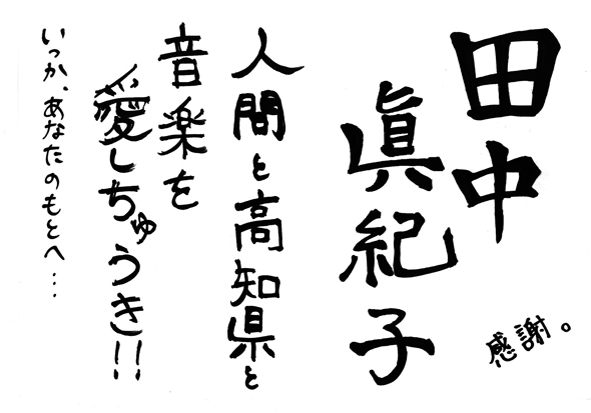 田中
眞紀子
感謝。
人間と高知県と
音楽を
愛しちゅうき!!
いつか、あなたのもとへ…